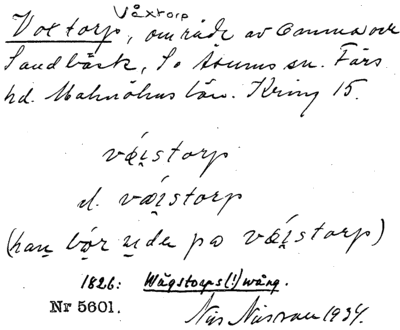 Våxtorp
Voxtorp, område av Omma och
Sandbäck, So Åsums sn. Färs
hd. Malmöhus län. Kring 15.
væ̨i̯storp
el. vǫi̯storp
(han bor nde pa væi̯storp)
1826: Wägstorps(!)wång.
Nr 5601. Nils Nilsson 1934.